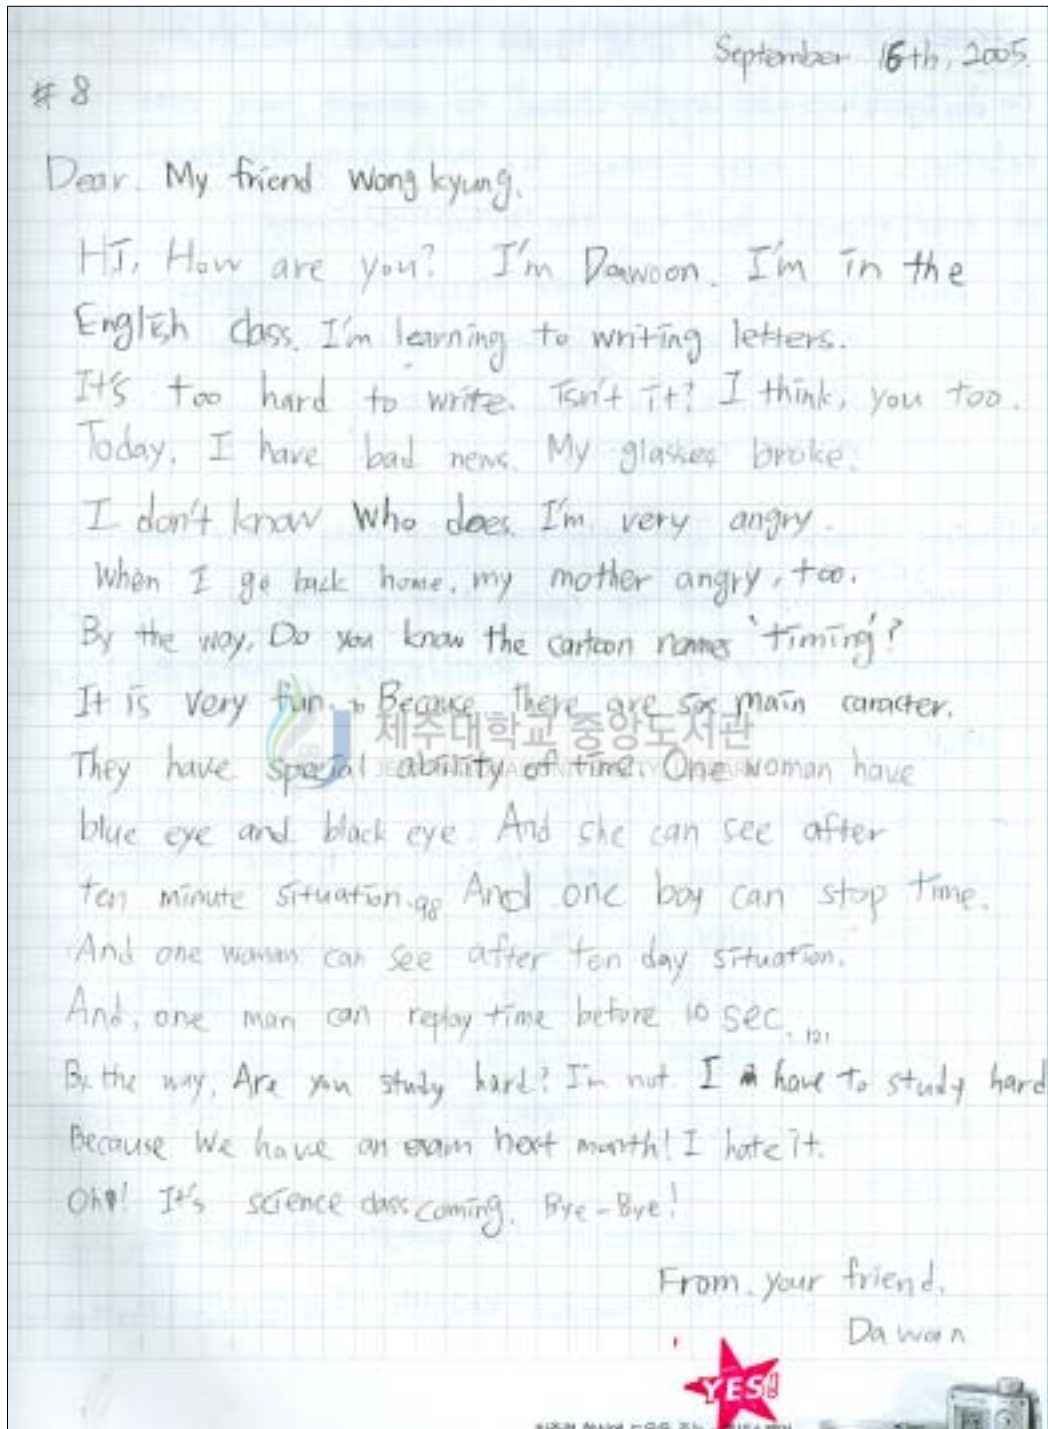 September 16th, 2005.
# 8
Dear. My friend Wong kyung.
Hi, How are you? I'm Dawoon. I'm in the
English class. I'm learning to writing letters.
It's too hard to write. Isn't it? I think, you too.
Today, I have bad news. My glasses broke.
I don't know who does. I'm very angry.
When I go back home, my mother angry, too.
By the way, Do you know the cartoon names 'timing'?
It is very fun. Because there are six main caracter.
제주대학교 중앙도서관
They have special ability of time. One woman have
JEJU NATIONAL UNIVERSITY LIBRARY
blue eye and black eye. And she can see after
ten minute situation. 98 And one boy can stop time.
And one woman can see after ten day situation.
And, one man can replay time before 10 sec. 121
By the way, Are you study hard? I'm not. I have to study hard
Because We have an exam next month! I hate it.
Oh! It's science class coming. Bye-Bye!
From. your friend.
Dawoon
YES!